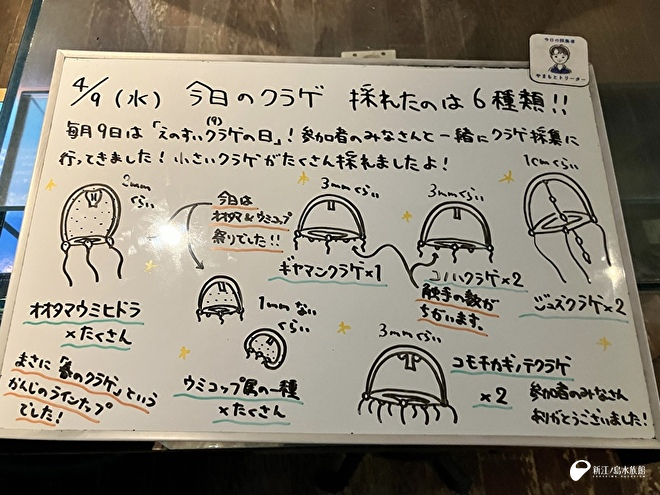 今日の採集者
やまもとトリーター
4/9(水) 今日のクラゲ 採れたのは6種類!!
毎月9日は「えのすいクラゲ(9)の日」!参加者のみなさんと一緒にクラゲ採集に
行ってきました!小さいクラゲがたくさん採れましたよ!
2mm
くらい
オオタマウミヒドラ
×たくさん
今日は
オオタマ&ウミコップ
祭りでした!!
3mmくらい
ギヤマンクラゲ×1
3mmくらい
コノハクラゲ×2
触手の数が
ちがいます。
1cmくらい
ジュズクラゲ×2
1mmない
くらい
ウミコップ属の一種
×たくさん
3mmくらい
コモチカギノテクラゲ
×2
まさに「春のクラゲ」という
かんじのラインナップ
でした!
参加者のみなさん
ありがとうございました!
新江ノ島水族館